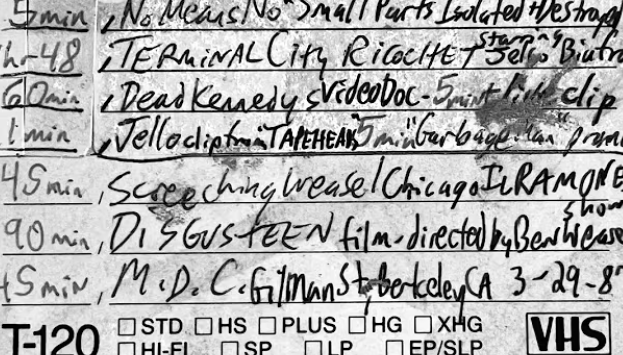 5min, NoMeansNo "Small Parts Isolated + Destroyed
hr-48, TERMINAL City RICOCHET starring Jello Biafra
60min, Dead Kennedys Video Doc - 5min + live clip
1 min, Jello clip from TAPEHEADS "5 min" Garbage Man" promo
45min, Screeching Weasel Chicago IL RAMONES show
90min, DISGUSTEEN film - directed by Ben Weasel
45min, M.D.C. Gilman St, Berkeley CA 3-29-8
T-120 STD HS PLUS HG XHG VHS
HI-FI SP LP EP/SLP